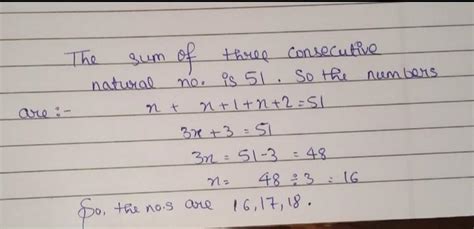 The sum of three consecutive
natural no. is 51. So the numbers
are :-
n + n+1+n+2=51
3n + 3 = 51
3n = 51-3 = 48
n= 48 ÷ 3 = 16
So, the no.s are 16,17,18.